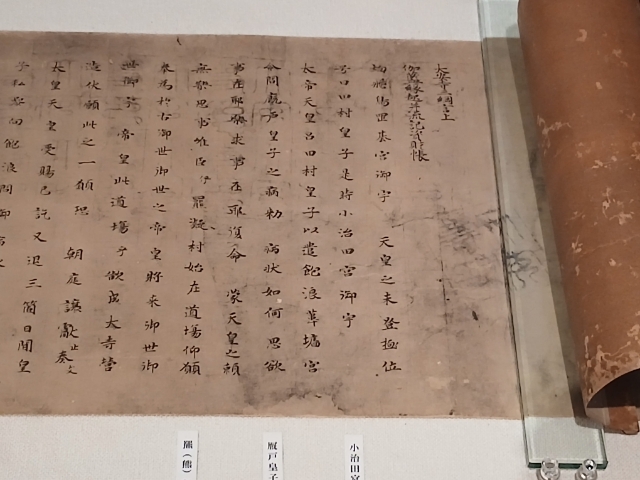 大安寺三綱言上
伽藍縁起并流記資財帳
初飛鳥岡基宮御宇 天皇之未登極位
号曰田村皇子是時小治田宮御宇
太帝天皇召田村皇子以遣飽浪葦墻宮
令問厩戸皇子之病勅 病状如何思欲
事在耶樂求事在耶復命 蒙天皇之頼
無樂思事唯臣伊羆凝村始在道場仰願
奉為於古御世御世之帝皇将来御世御
世御宇 帝皇此道場乎欲成大寺營
造伏願此之一願恐 朝庭譲獻止奏支
太皇天皇受賜已訖又退三箇日間皇
子私参向飽浪問御
小治田宮
厩戸皇子
羆（熊）